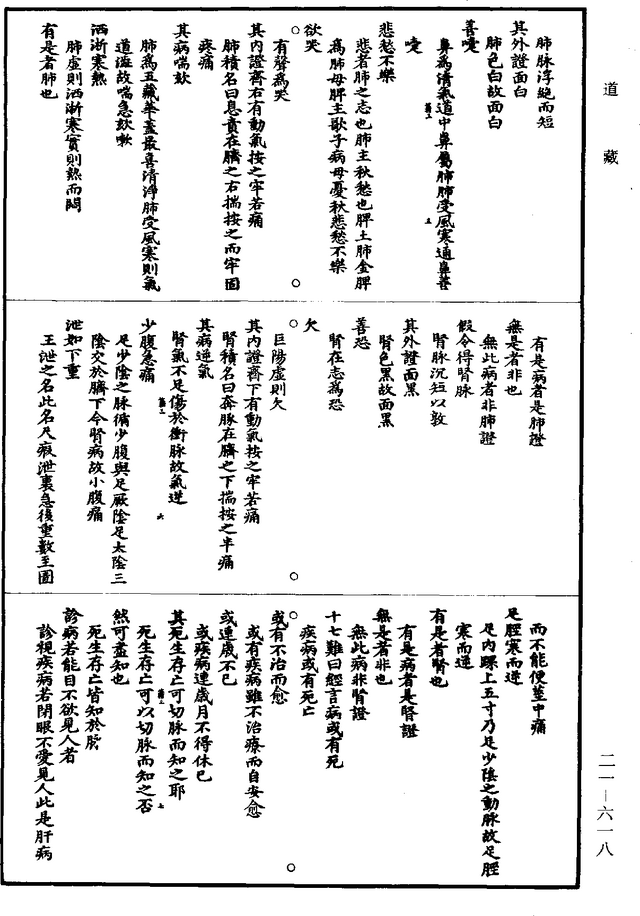 道藏
肺脉浮緦而短
其外證面白
肺色白故面白
善嚏
鼻為清氣道中鼻屬肺肺受風寒通鼻善
嚏
悲愁不樂
悲者肺之志也肺主秋愁也脾土肺金脾
為肺母脾主歌子病母憂秋悲愁不樂
欲哭
有聲為哭
其內證齊右有動氣按之牢若痛
肺積名曰息賁在臍之右揣按之而牢固
疼痛
其病喘欬
肺為五藏華蓋最喜清淨肺受風寒則氣
道溢故喘急欬嗽
洒淅寒熱
肺虛則洒淅寒實則熱而悶
有是者肺也
有是病者是肺證
無是者非也
無此病者非肺證
假令得腎脉
腎脉沉短以敦
其外證面黑
腎色黑故面黑
善恐
腎在志為恐
欠
巨陽虛則欠
其內證齊下有動氣按之牢若痛
腎積名曰奔豚在臍之下揣按之半痛
其病逆氣
腎氣不足傷於衝脉故氣逆
少腹急痛
足少陰之脉循少腹與足厥陰足太陰三
陰交於臍下令腎病故小腹痛
泄如下重
五泄之名此名大瘕泄裏急後重數至圊
而不能便莖中痛
足脛寒而逆
足內踝上五寸乃足少陰之動脉故足脛
寒而逆
有是者腎也
有是病者是腎證
無是者非也
無此病非腎證
十七難曰經言病或有死
疾病或有死亡
或有不治而愈
或有疾病雖不治療而自安愈
或連歲不已
或疾病連歲月不得休已
其死生存亡可切脉而知之耶
死生存亡可以切脉而知之否
然可盡知也
死生存亡皆知於脉
診病若能目不欲見人者
診視疾病若閉眼不愛見人此是肝病
二一—六一八